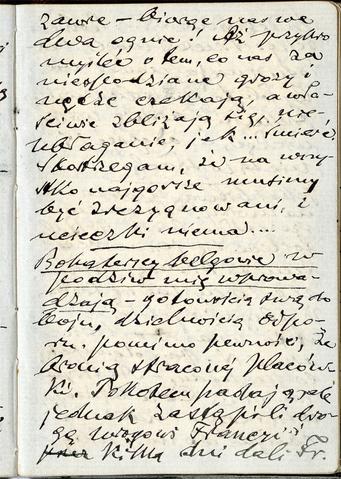 zawre – biorąc nas we
dwa ognie! Aż przykro
myśleć o tem, co nas za
niespodziane grozy i
nędze czekają, a właś
ciwie zbliżają się, nie
ubłaganie, jak... śmierć.
Spostrzegam, że na wszy
stko najgorsze musimy
być zrezygnowani, i
ucieczki niema....
Bohaterscy belgowie w
podziw mię wprowa
dzają – gotowością swą do
boju, dzielnością odpo
ru. pomimo pewność, że
bronią straconej placów
ki. Pokotem padają, ale
jednak zastąpili dro
gę wrogowi Francji i
kilka dni dali Fr.